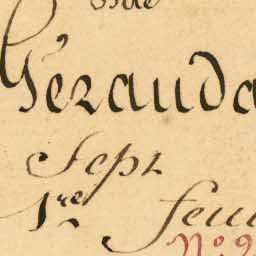 Geranda
Sept
1re feu
N.º 9